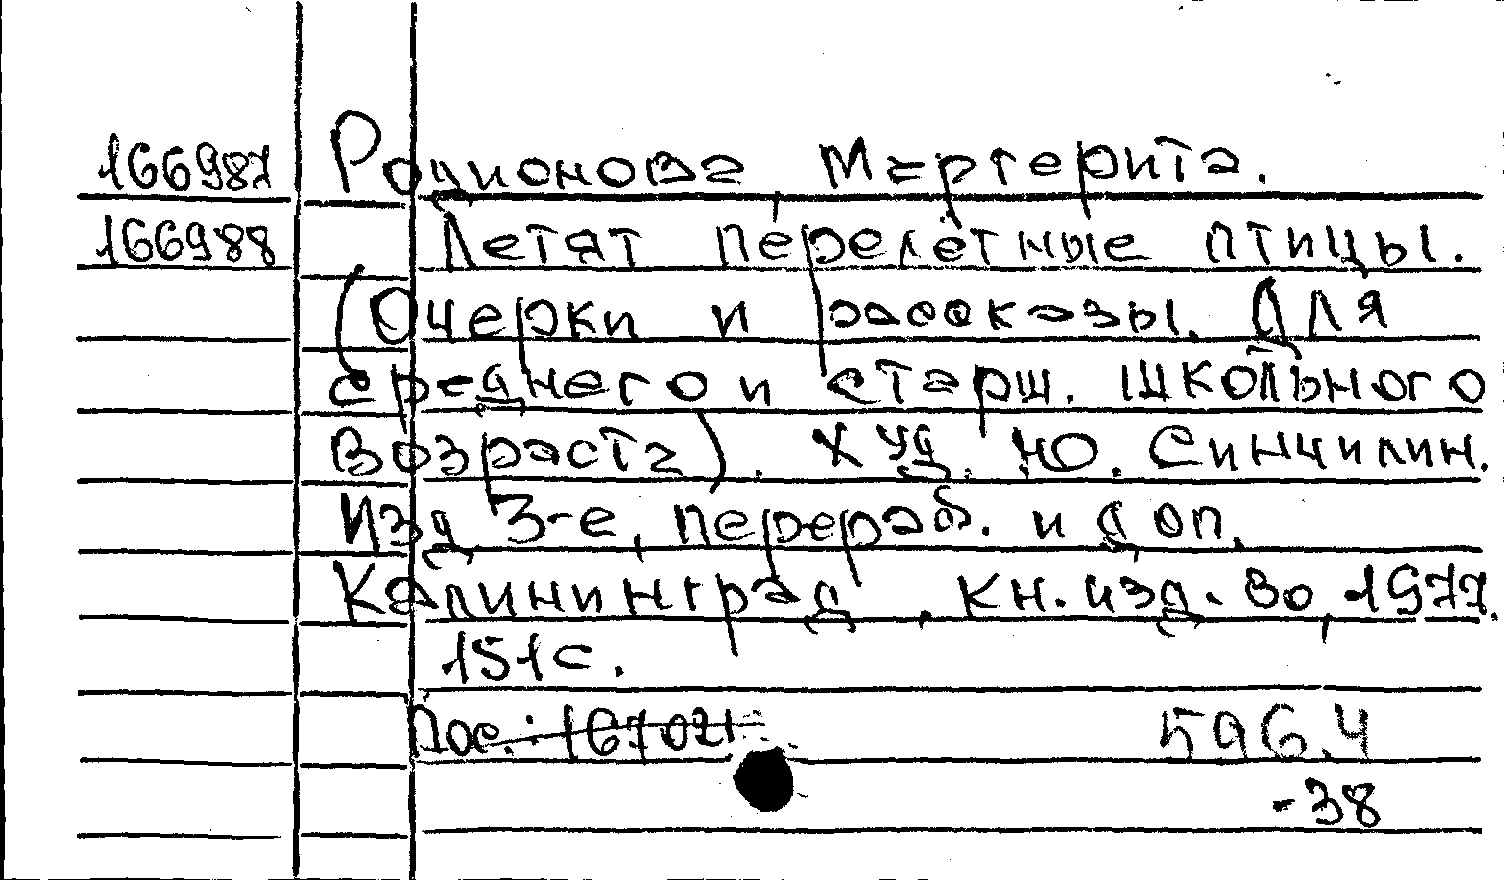 166987 Родионова Маргерита.
166988 Летят перелётные птицы.
(Очерки и рассказы. Для
среднего и старш. школьного
возраста). Худ. Ю. Синчилин.
Изд 3-е, перераб. и доп.
Калининград, кн. изд-во, 1977.
151с.
Пос.: 167021 596.4
-38